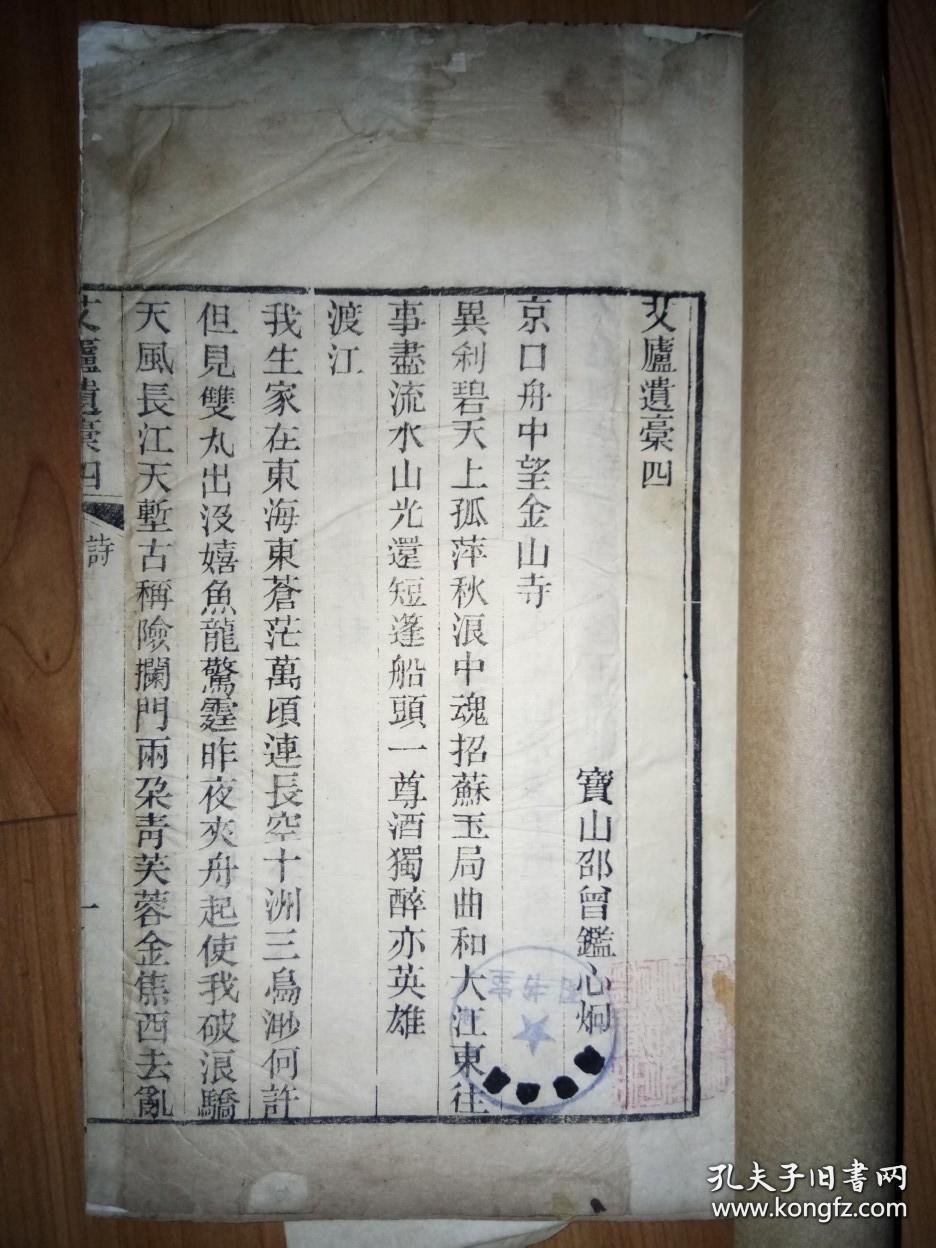 艾廬遺稾四
寶山邵曾鑑心炯
京口舟中望金山寺
異刹碧天上孤萍秋浪中魂招蘇玉局曲和大江東往
事盡流水山光還短蓬船頭一尊酒獨醉亦英雄
渡江
我生家在東海東蒼茫萬頃連長空十洲三島渺何許
但見雙丸出沒嬉魚龍驚霆昨夜夾舟起使我破浪驕
天風長江天塹古稱險攔門兩朶青芙蓉金焦西去亂
艾廬遺稾四
詩
一
孔夫子旧书网
www.kongfz.com